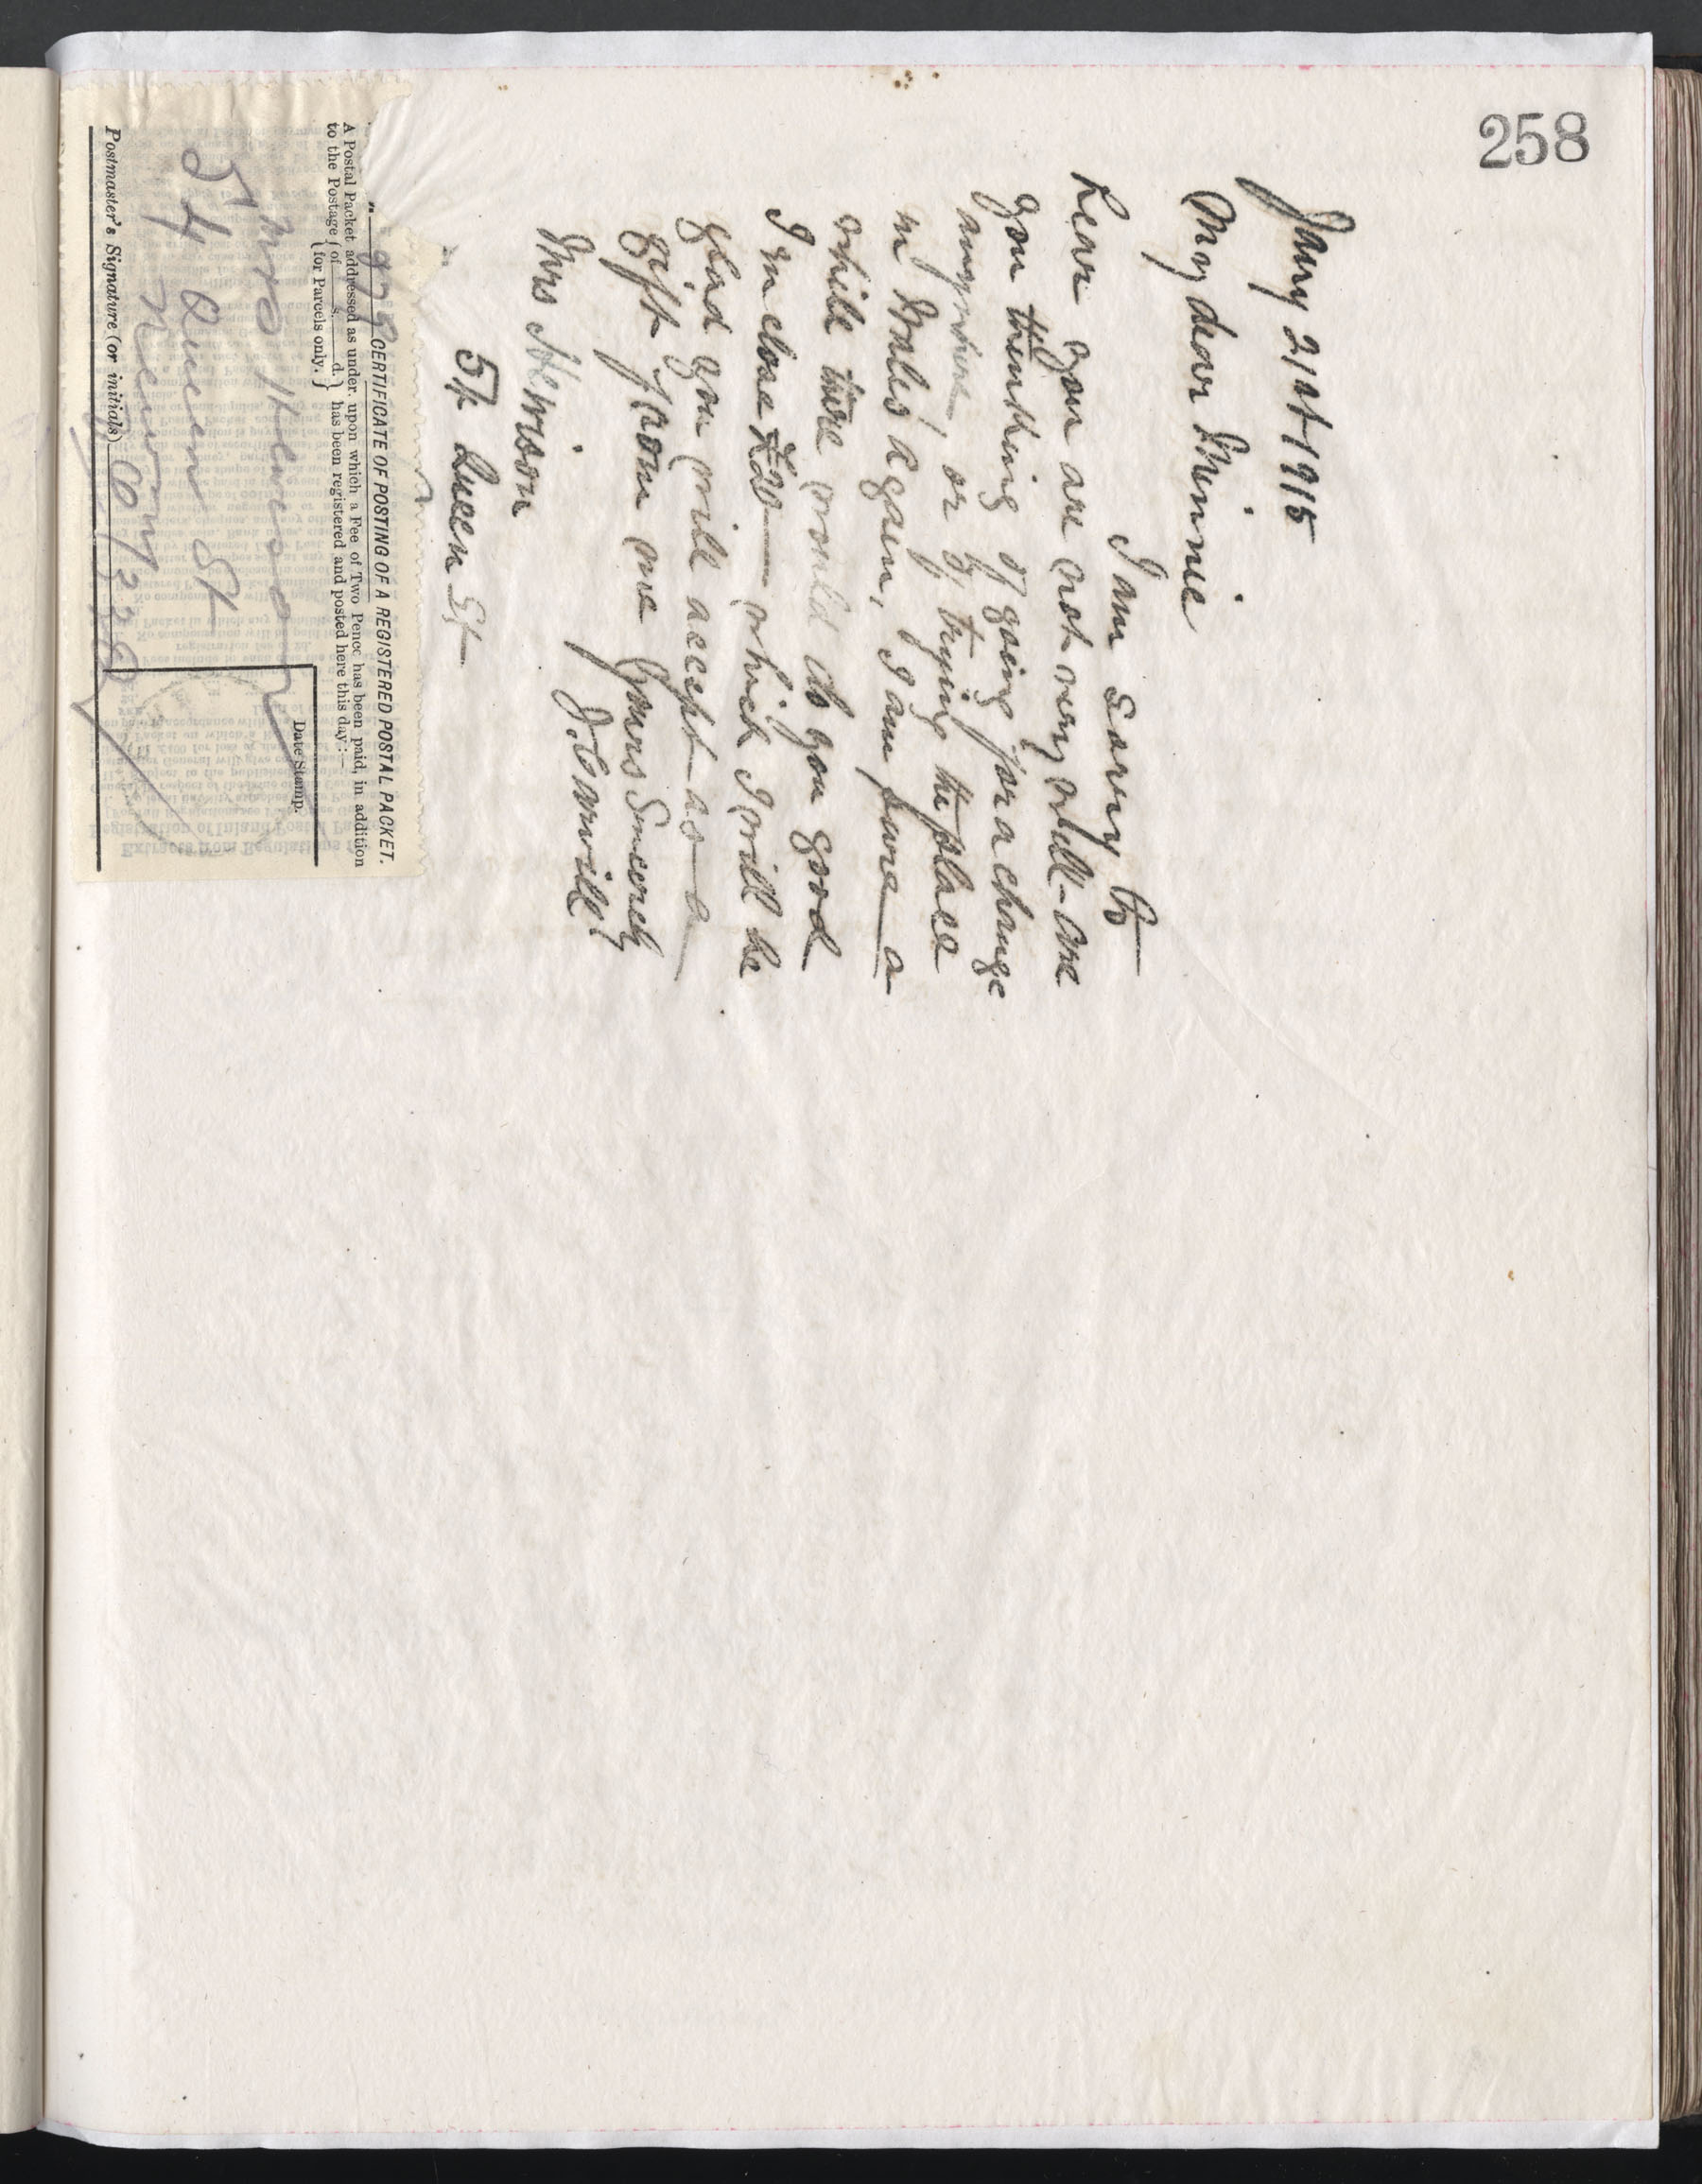 258
Jany 21st 1915
My dear Minnie
I am sorry to
hear you are not very well - are
you thinking of going for a change
anywhere, or of trying the place
in Wales again, I am sure a
while there would do you good
I inclose £20 — which I will be
glad you will accept as a
gift from me Yours Sincerely
J. Carvill
Mrs Hewison
54 Queen St
CERTIFICATE OF POSTING OF A REGISTERED POSTAL PACKET.
A Postal Packet addressed as under, upon which a Fee of Two Pence has been paid, in addition
to the Postage { of s. d. } has been registered and posted here this day:—
{ for Parcels only. }
Date Stamp.
Mrs Hewison
54 Queen St
Newry
Postmaster's Signature (or initials)